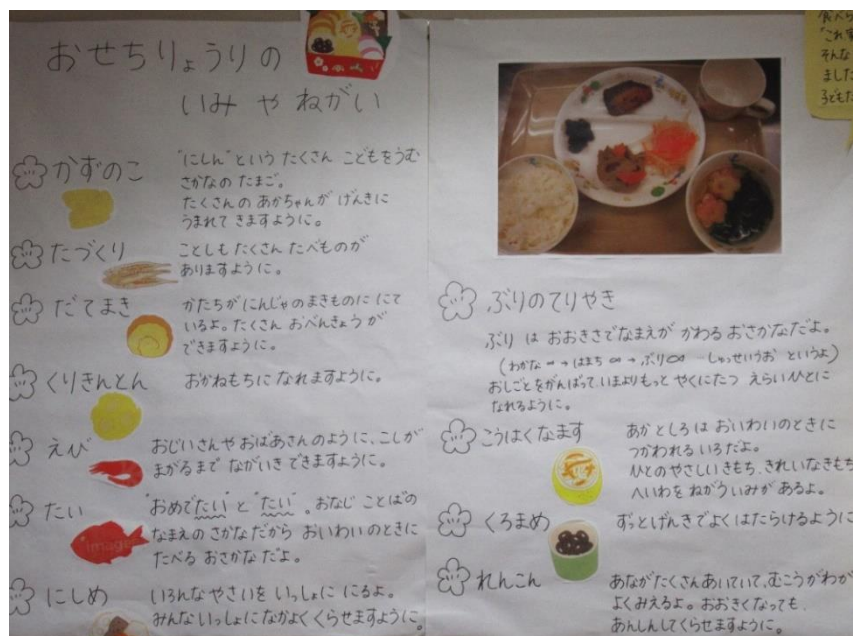 おせちりょうりの
いみ や ねがい
かずのこ
"にしん"という たくさん こどもをうむ
さかなの たまご。
たくさんの あかちゃんが げんきに
うまれて きますように。
たづくり
ことしも たくさん たべものが
ありますように。
だてまき
かたちが にんじゃのまきものに にて
いるよ。たくさん おべんきょうが
できますように。
くりきんとん
おかねもちに なれますように。
えび
おじいさんや おばあさんのように、こしが
まがるまで ながいき できますように。
たい
"おめでたい"と"たい"。おなじ ことばの
なまえの さかなだから おいわいのときに
たべる おさかなだよ。
にしめ
いろんなやさいを いっしょに にるよ。
みんないっしょに なかよく くらせますように。
ぶりのてりやき
ぶり は おおきさでなまえが かわる おさかなだよ。
(わかな→はまち→ぶり しゅっせいうお というよ)
おしごとをがんばって、いまよりもっと やくにたつ えらいひとに
なれるように。
こうはくなます
あかとしろは おいわいのときに
つかわれる いろだよ。
ひとのやさしいきもち、きれいなきもち
へいわを ねがういみが あるよ。
くろまめ
ずっとげんきでよくはたらけるように
れんこん
あながたくさんあいていて、むこうがわが
よくみえるよ。おおきくなっても、
あんしんしてくらせますように。
食べら
「これ
そんな
ました
子どもた